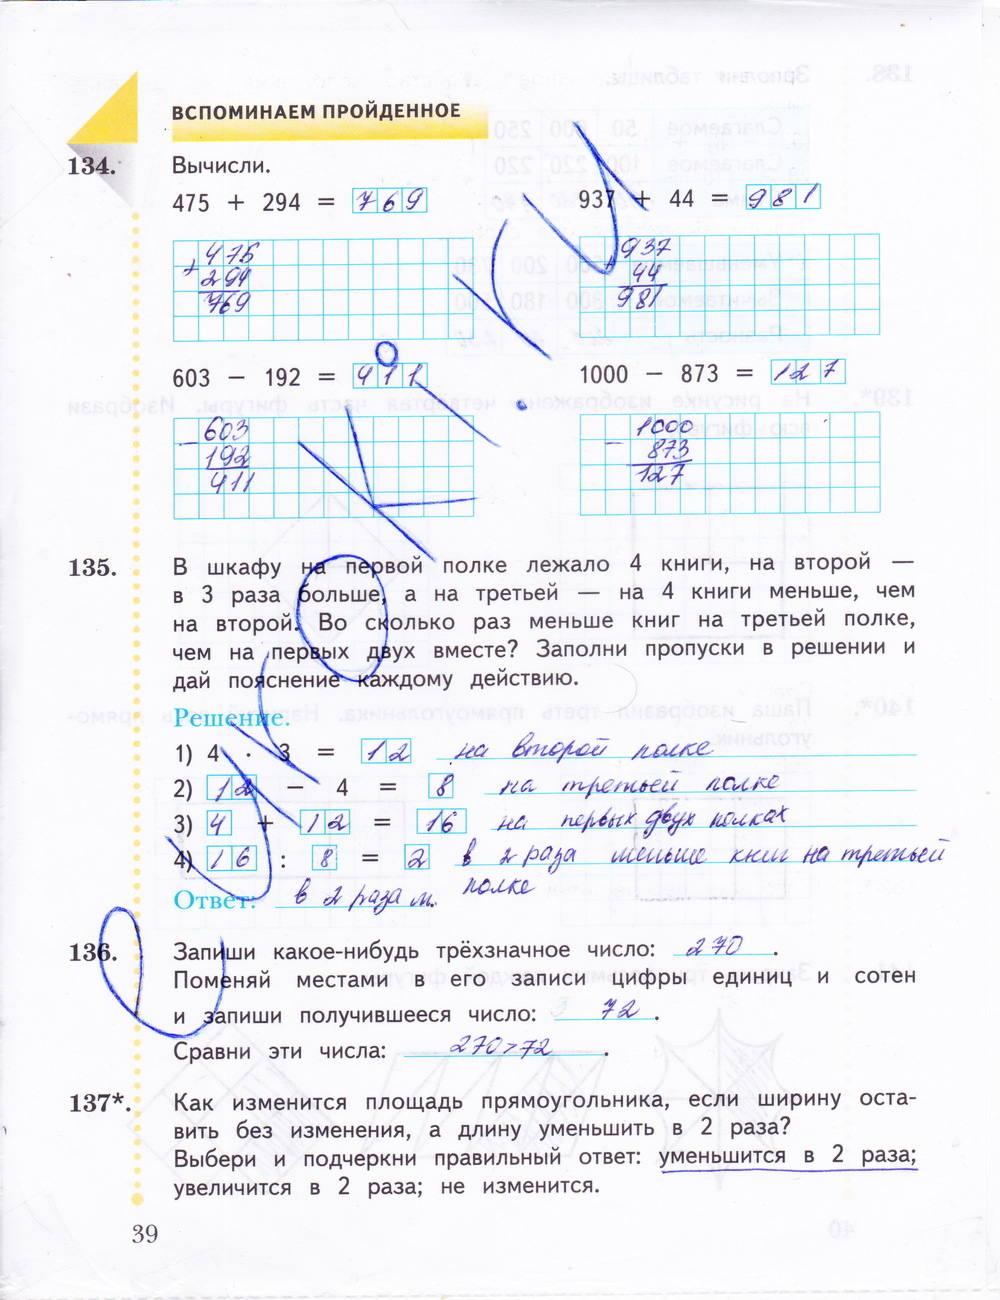 ВСПОМИНАЕМ ПРОЙДЕННОЕ
134. Вычисли.
475 + 294 = 769
937 + 44 = 981
+ 475
294
769
+ 937
44
981
603 − 192 = 411
1000 − 873 = 127
− 603
192
411
− 1000
873
127
135. В шкафу на первой полке лежало 4 книги, на второй —
в 3 раза больше, а на третьей — на 4 книги меньше, чем
на второй. Во сколько раз меньше книг на третьей полке,
чем на первых двух вместе? Заполни пропуски в решении и
дай пояснение каждому действию.
Решение.
1) 4 · 3 = 12 на второй полке
2) 12 − 4 = 8 на третьей полке
3) 4 + 12 = 16 на первых двух полках
4) 16 : 8 = 2 в 2 раза меньше книг на третьей
полке
Ответ: в 2 раза м.
136. Запиши какое-нибудь трёхзначное число: 270.
Поменяй местами в его записи цифры единиц и сотен
и запиши получившееся число: 72.
Сравни эти числа: 270>72.
137*. Как изменится площадь прямоугольника, если ширину оста-
вить без изменения, а длину уменьшить в 2 раза?
Выбери и подчеркни правильный ответ: уменьшится в 2 раза;
увеличится в 2 раза; не изменится.
39